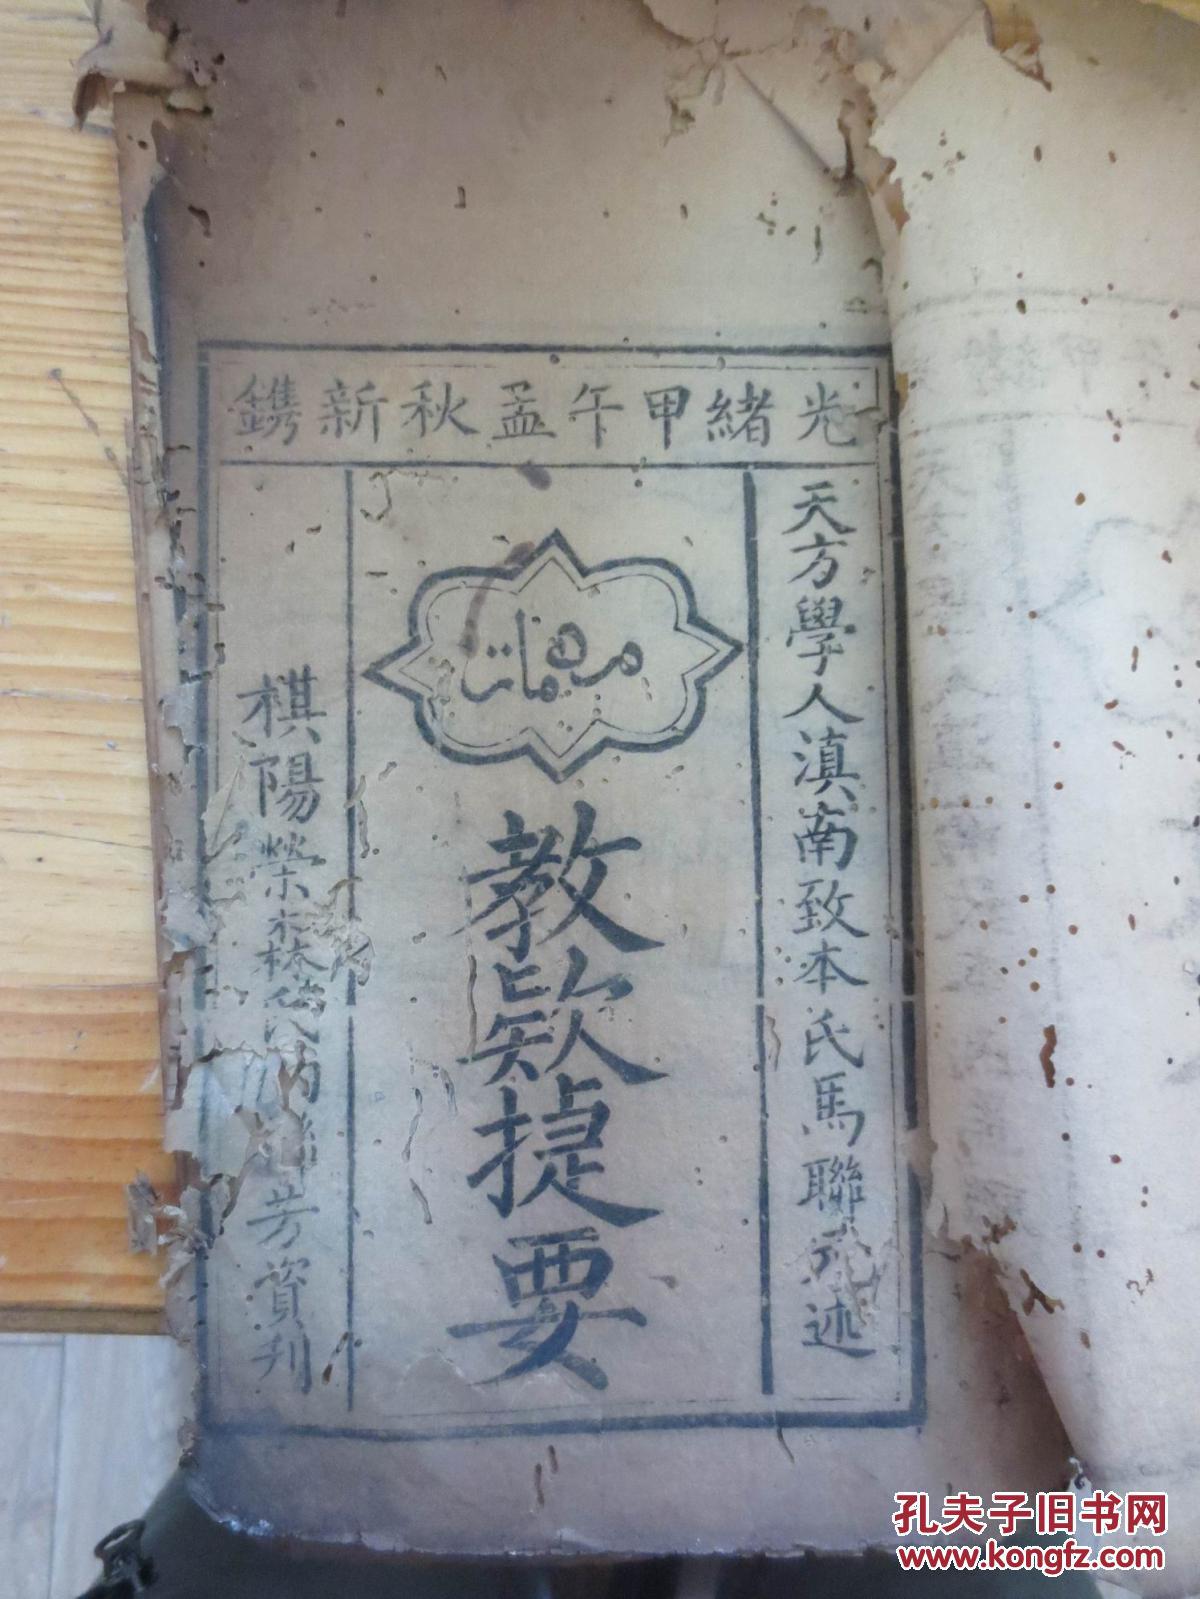 光緒甲午孟秋新鐫
天方學人滇南致本氏馬聯元述
مهمات
教欵捷要
棋陽榮森氏馬聯芳資刊
孔夫子旧书网
www.kongfz.com